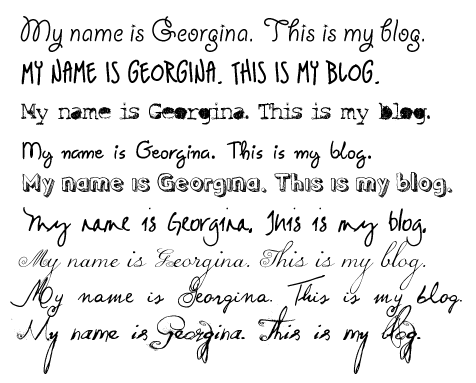 My name is Georgina. This is my blog.
MY NAME IS GEORGINA. THIS IS MY BLOG.
My name is Georgina. This is my blog.
My name is Georgina. This is my blog.
My name is Georgina. This is my blog.
My name is Georgina. This is my blog.
My name is Georgina. This is my blog.
My name is Georgina. This is my blog.
My name is Georgina. This is my blog.